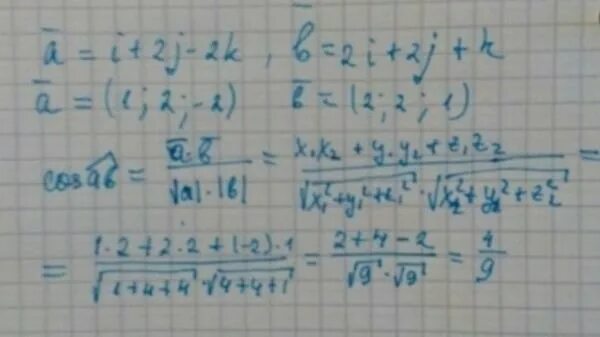 a̅ = i + 2j - 2k , b̅ = 2i + 2j + k
a̅ = (1; 2; -2) b̅ = (2; 2; 1)
cos a͡b = a̅·b̅ / |a|·|b| = x₁x₂ + y₁y₂ + z₁z₂ / √x₁²+y₁²+z₁² · √x₂²+y₂²+z₂² =
= 1·2 + 2·2 + (-2)·1 / √1+4+4 · √4+4+1 = 2+4-2 / √9 · √9 = 4/9